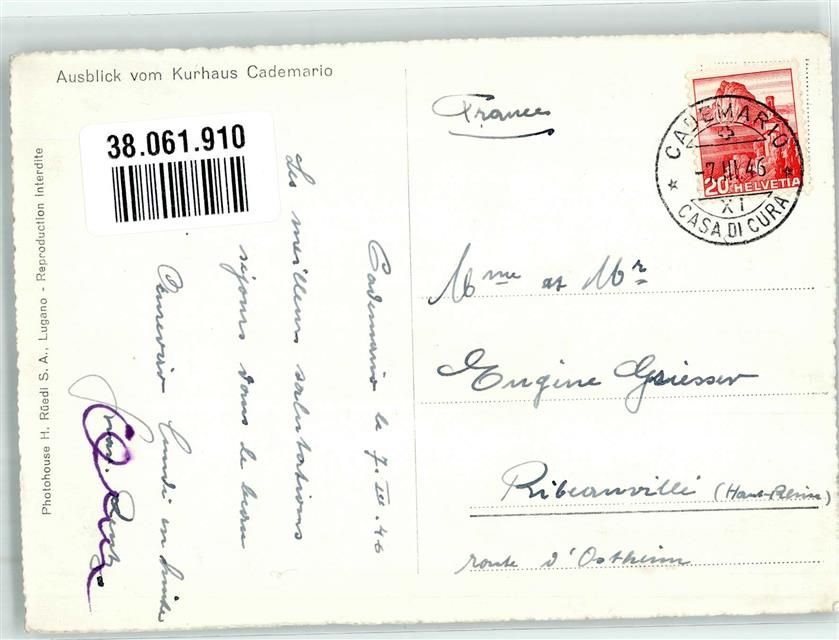 Ausblick vom Kurhaus Cademario
38.061.910
Photohouse H. Rüedi S. A., Lugano - Reproduction interdite
Cademario le 7.III.46
meilleurs salutations
séjours dans le beau
lundi en
France
CADEMARIO
-7.III.46
XI
CASA DI CURA
20 HELVETIA
Mme et Mr
Eugène Griesser
Ribeauvillé (Haut-Rhin)
route d'Ostheim